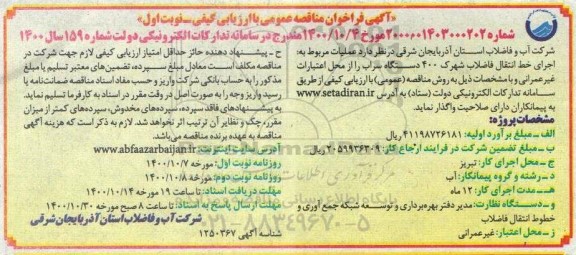 «آگهی فراخوان مناقصه عمومی با ارزیابی کیفی ـ نوبت اول»
شماره ۲۰۰۰۰۰۱۴۰۳۰۰۰۲۰۲ مورخ ۱۴۰۰/۱۰/۴ مندرج در سامانه تدارکات الکترونیکی دولت شماره ۱۵۹ سال ۱۴۰۰
شرکت آب و فاضلاب استان آذربایجان شرقی در نظر دارد عملیات مربوط به:
اجرای خط انتقال فاضلاب شهرک ۴۰۰ دستگاه سراب را از محل اعتبارات
غیرعمرانی و با مشخصات ذیل به روش مناقصه (عمومی) با ارزیابی کیفی از طریق
سامانه تدارکات الکترونیکی دولت (ستاد) به آدرس www.setadiran.ir
به پیمانکاران دارای صلاحیت واگذار نماید.
مشخصات پروژه:
الف ـ مبلغ برآورد اولیه: ۴۱۱۹۸۷۲۶۱۸۱ ریال
ب ـ مبلغ تضمین شرکت در فرایند ارجاع کار: ۲۰۵۹۹۳۶۳۰۹ ریال
ج ـ محل اجرای کار: تبریز
د ـ رشته و گروه پیمانکار: آب
هـ ـ مدت اجرای کار: ۱۲ ماه
و ـ دستگاه نظارت: مدیر دفتر بهره‌برداری و توسعه شبکه جمع آوری و
خطوط انتقال فاضلاب
ز ـ محل اعتبار: غیرعمرانی
ح ـ پیشنهاد دهنده حائز حداقل امتیاز ارزیابی کیفی لازم جهت شرکت در
مناقصه مکلف است معادل مبلغ سپرده، تضمین‌های معتبر تسلیم یا مبلغ
مذکور را به حساب بانکی شرکت واریز و حسب مفاد اسناد مناقصه ضمانت‌نامه یا
رسید واریز وجه را به صورت اصل در وقت مقرر در اسناد به کارفرما تسلیم نماید.
به پیشنهادهای فاقد سپرده، سپرده‌های مخدوش، سپرده‌های کمتر از میزان
مقرر، چک و نظایر آن ترتیب اثر نخواهد شد. لازم به ذکر است که هزینه آگهی
مناقصه به عهده برنده مناقصه می‌باشد.
آدرس سایت اینترنتی: www.abfaazarbaijan.ir
روزنامه نوبت اول: مورخه ۱۴۰۰/۱۰/۷
روزنامه نوبت دوم: مورخه ۱۴۰۰/۱۰/۸
مهلت دریافت اسناد: تا ساعت ۱۹ مورخه ۱۴۰۰/۱۰/۱۴
مهلت ارسال پاسخ به اسناد: تا ساعت ۸ صبح مورخه ۱۴۰۰/۱۰/۳۰
شرکت آب و فاضلاب استان آذربایجان شرقی
شناسه آگهی ۱۲۵۰۳۶۷
۰۲۱-۸۸۳۴۹۶۷۰-۵